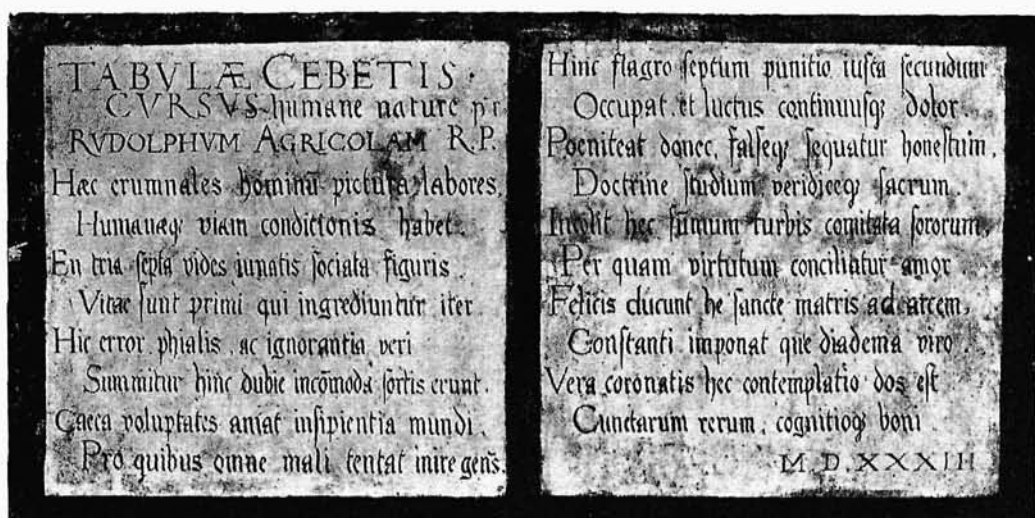 TABVLÆ CEBETIS.
CVRSVS humane nature pr
RVDOLPHVM AGRICOLAM R.P.
Hæc erumnales hominũ pictura labores,
Humanæq; viam conditionis habet.
En tria septa vides iunatis sociata figuris.
Vitae sunt primi qui ingrediuntur iter
Hic error phialis, ac ignorantia veri
Summitur hinc dubie incõmoda sortis erunt.
Caeca voluptates amat insipientia mundi.
Pro quibus omne mali tentat inire gens.
Hinc flagro septum punitio iusta secundum
Occupat et luctus continuusq; dolor.
Poeniteat donec, falseq; sequatur honestum.
Doctrine studium veridiceq; sacrum.
Incolit hec sũmum turbis comitata sororum,
Per quam virtutum conciliatur amor
Felicis ducunt he sancte matris ad arcem,
Constanti imponat que diadema viro
Vera coronatis hec contemplatio dos est
Cunctarum rerum, cognitioq; boni
M.D.XXXIII